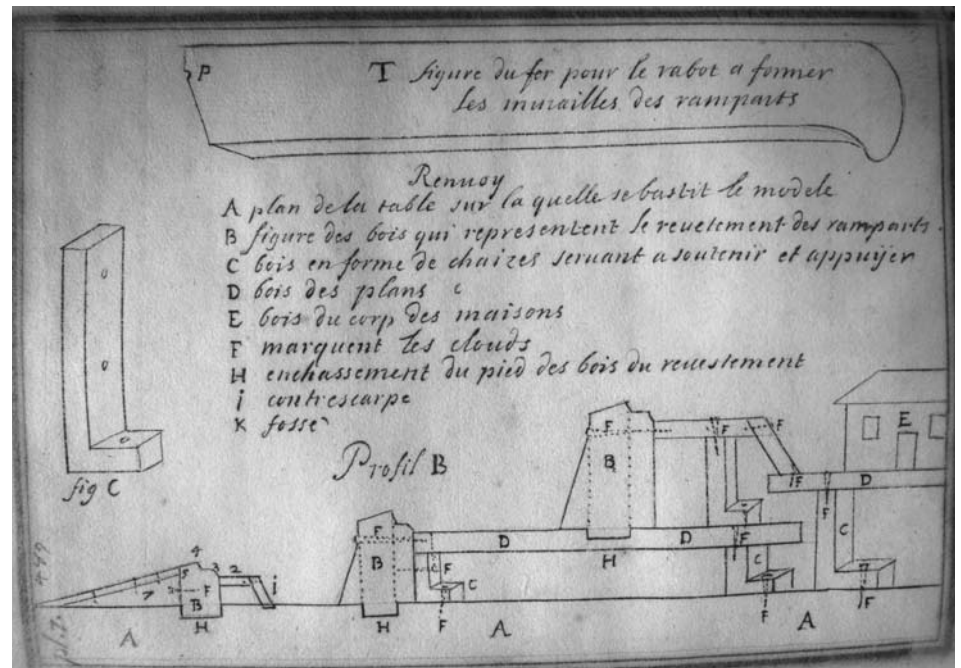 P
T figure du fer pour le rabot a former
les murailles des ramparts
Renuoy
A plan de la table sur la quelle se bastit le modele
B figure des bois qui representent le reuetement des ramparts.
C bois en forme de chaizes seruant a soutenir et appuijer
D bois des plans
E bois du corp des maisons
F marquent les clouds
H enchassement du pied des bois du reuestement
i contrescarpe
K fosse
fig C
Profil B
F F F E
B
F D
F
F D D F C
4 B F H C
5 3 2 C
7 F i
B F F F
H H
A A A
499
pl. 7.